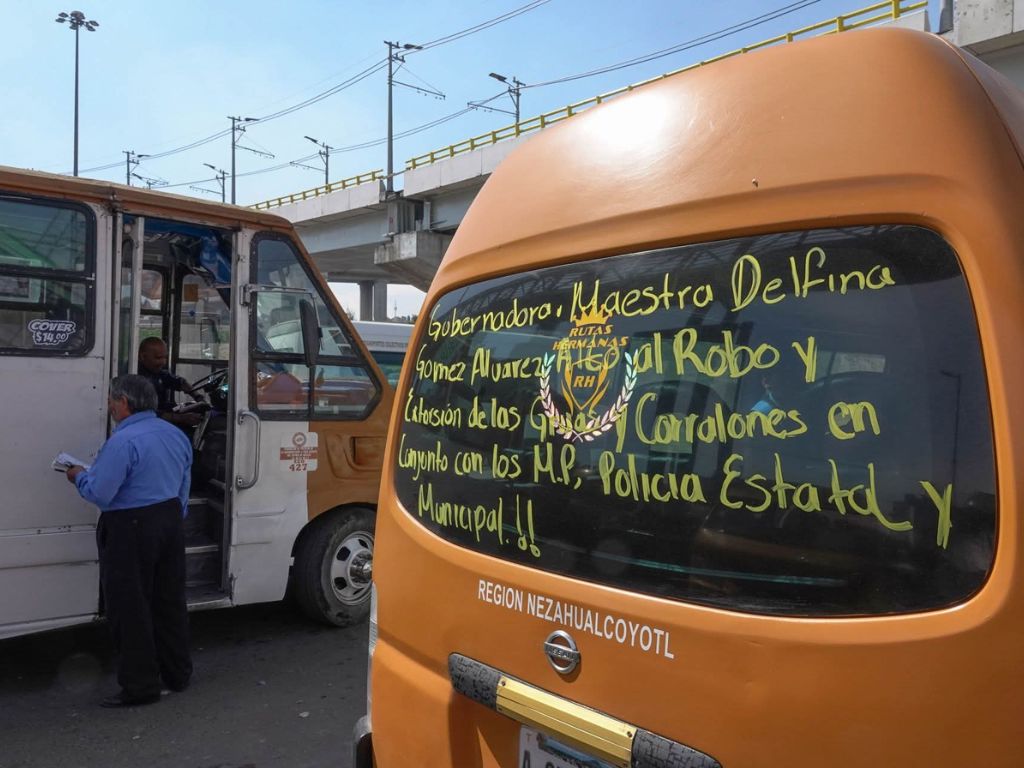 COVER
$14.00
427
Gobernadora. Maestra Delfina
Gomez Alvarez Alto al Robo y
Extorsión de las Gruas y Corralones en
Conjunto con los M.P, Policia Estatal y
Municipal.!!
RUTAS
HERMANAS
RH
REGION NEZAHUALCOYOTL
NISSAN